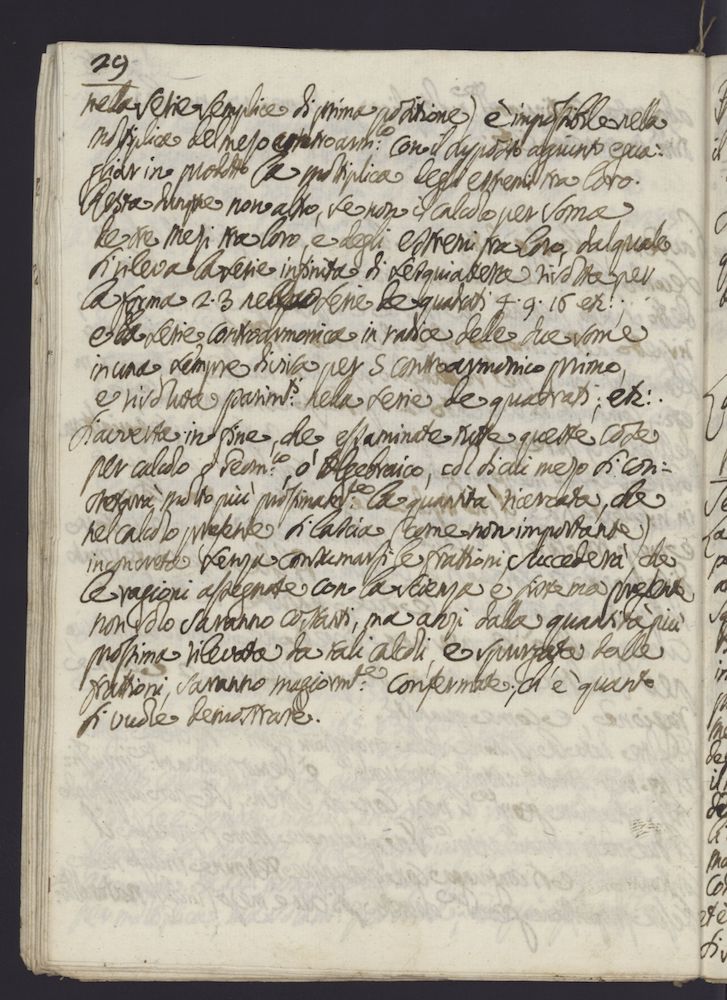 29
nella serie semplice di prima positione) è impossibile nella
moltiplica del mezo contrarm.co con il duplo aguagl
in prodotto la moltiplica degl'estremi tra loro.
Resta dunque non altro, se non il calcolo per somma
de tre mezi tra loro, e degli estremi tra loro, dal quale
si rileva la serie infinita di sesquialtera risoluta per
la forma 2. 3 nella serie de quadrati 4. 9. 16 etc:.
e la serie contrarmonica in radice delle due some
in una sempre divisa per 5 contrarmonico primo,
e risoluta parim.ti nella serie de quadrati, etc:.
S'averta in fine, che essaminate tutte queste cose
per calcolo ò Geom.co, ò Algebraico, col di cui mezo si con=
molto più prossimam.te la quantità ricercata, che
nel calcolo presente si lascia (come non importante)
senza consumarsi le frattioni, succederà che
le ragioni assegnate con la scienza e sistema presente
non solo saranno costanti, ma anzi dalla quantità più
prossima rilevata da tali calcoli, e spurgata dalle
frattioni, saranno magiorm.te confermate. Ch'è quanto
si vuole demostrare.